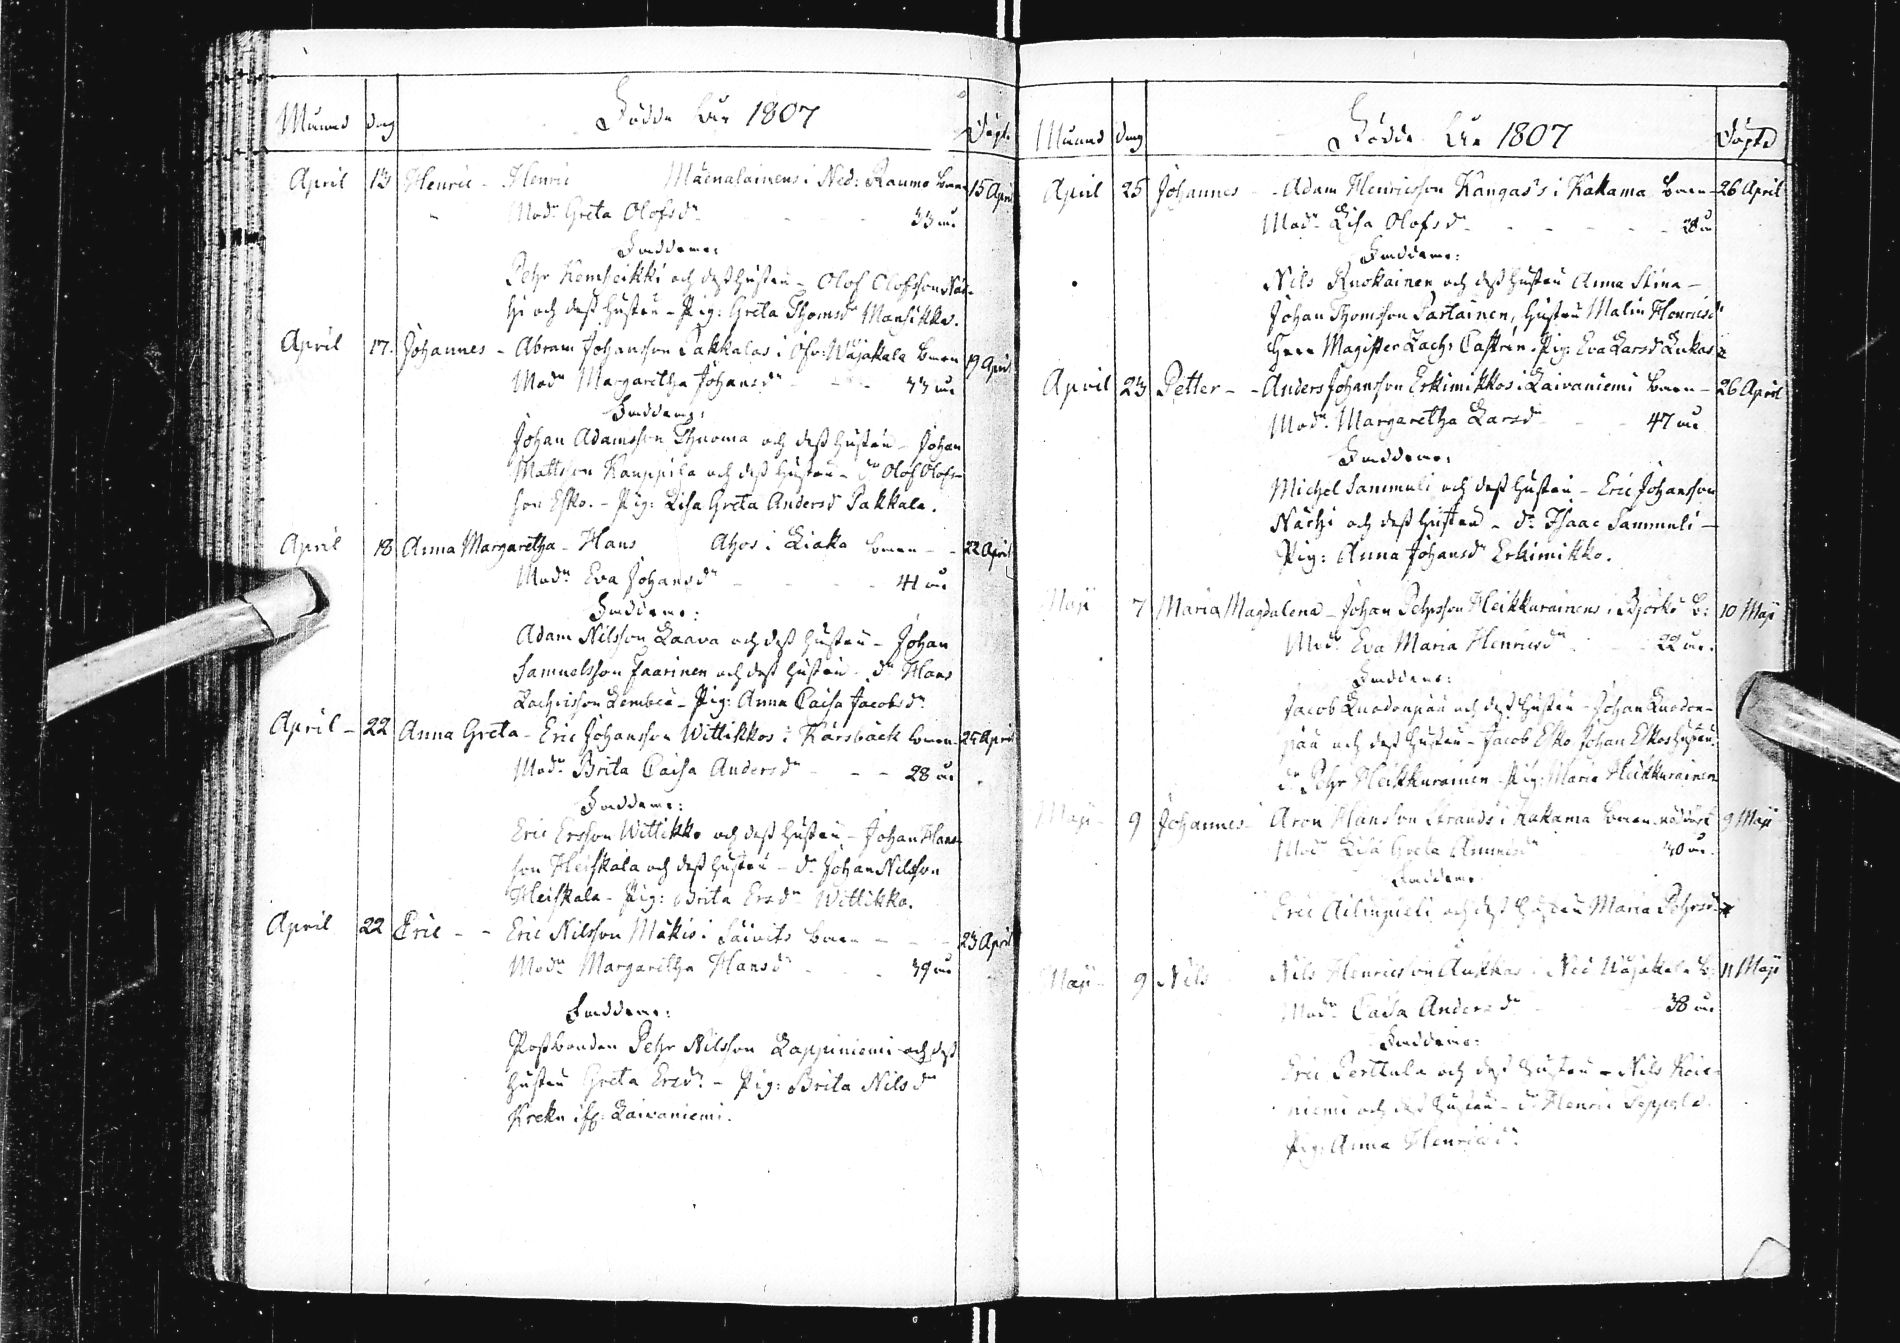 Månad dag Födde År 1807 Döpte
April 13 Henric - Henric Mäenalainens i Ned: Raumo barn 15 April
Modn Greta Olofsdr - - - - 33 år
Faddrarne:
Pehr Kemheikki och dess hustru - Olof Olofsson Näs-
hi och dess hustru - Pig: Greta Thomsdr Mansikka.
April 17. Johannes - Abram Johansson Pakkalas i Öfv: Wåjakala barn 19 April
Modn Margaretha Johansdr - - - 33 år
Faddrarne:
Johan Adamsson Thuoma och dess hustru - Johan
Mattsson Kauppila och dess hustru - dr Olof Olofs-
son Esko. - Pig: Lisa Greta Andersdr Pakkala.
April 18 Anna Margaretha - Hans Ahos i Liaka barn - - 22 April
Modn Eva Johansdr - - - - 41 år
Faddrarne:
Adam Nilsson Laava och dess hustru - Johan
Samuelsson Faarinen och dess hustru - dr Hans
Zachrisson - Pig: Anna Caisa Jacobsdr
April - 22 Anna Greta - Eric Johansson Wittikkos i Karsbäck barn - April
Modn Brita Caisa Andersdr - - - 28 år
Faddrarne:
Eric Ersson Wittikko och dess hustru - Johan Hans-
son Heiskala och dess hustru - dr Johan Nilsson
Heiskala - Pig: Brita Ersdr Wittikko.
April 22 Eric - - Eric Nilsson Mäkis i Säivits barn - - - 23 April
Modn Margaretha Hansdr - - - 39 år
Faddrarne:
Postbonden Pehr Nilsson Lappiniemi och dess
hustru Greta Ersdr - Pig: Brita Nilsdr
Laivaniemi.
Månad dag Födde År 1807 Döpte
April 25 Johannes - - Adam Henricsson Kangas's i Kakama barn - 26 April
Modn Lisa Olofsdr - - - - - 28 år
Faddrarne:
Nils Ruokainen och dess hustru Anna Stina -
Johan Thomsson Partainen, hustru Malin Henricsdr
Herr Magister Zach: Castrén. Pig: Eva Larsdr Lukas
April 23 Petter - - Anders Johansson Erkimikkos i Laivaniemi barn - 26 April
Modn Margaretha Larsdr - - - 47 år
Faddrarne:
Michel Sammuli och dess hustru - Eric Johansson
Nächi och dess hustru - dr Isaac Sammuli -
Pig: Anna Johansdr Erkimikko.
Maji 7 Maria Magdalena - Johan Pehrsson Heikkurainens i Björkö b: 10 Maji
Modr Eva Maria Henricsdr - - 22 år.
Faddrarne:
Jacob Luodonpää och dess hustru - Johan Luodon-
pää och dess hustru - Jacob Esko Johan Eskos hustru
dr Pehr Heikkurainen - Pig: Maria Heikkurainen
Maji - 9 Johannes - Aron Hansson Strands i Kakama barn nöddöpt 9 Maji
Modr Lisa Greta 30 år.
Faddrarne
Eric Ailinpieti och dess hustru Maria Pehrsdr
Maji - 9 Nils Nils Henricsson i Ned Wåjakala b: 11 Maji
Modr Caisa Andersdr - - 38 år
Faddrarne:
Eric Perttula och dess hustru - Nils Koi-
niemi och dess hustru - dr Henric Seppälä.
Pig: Anna Henricsdr